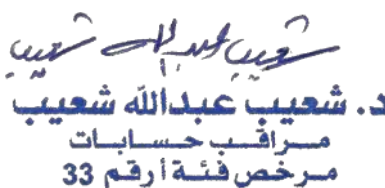 شعيب عبدالله شعيب
د. شعيب عبدالله شعيب
مراقب حسابات
مرخص فئة أ رقم 33